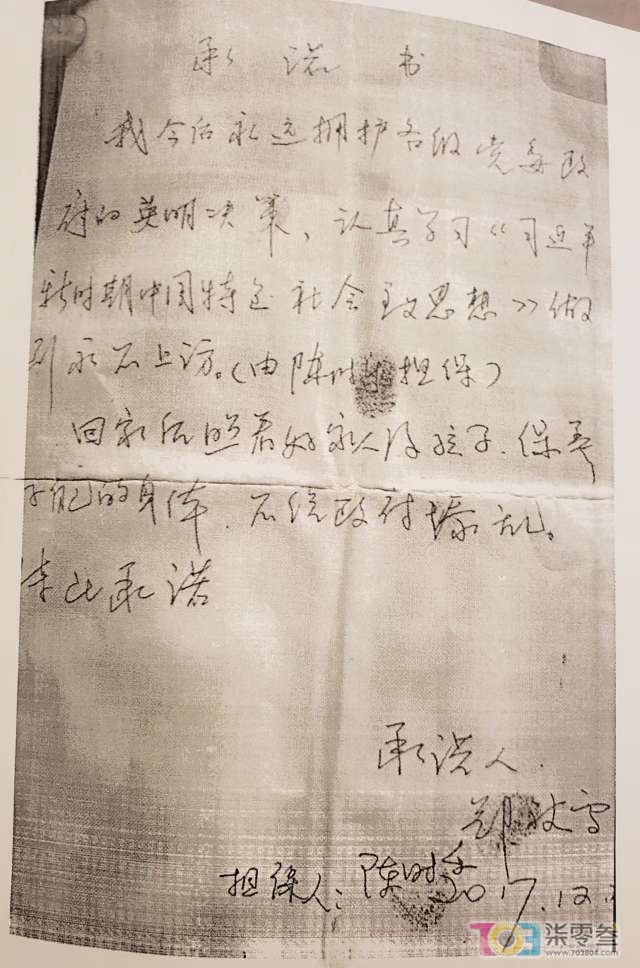 承诺书
我今后永远拥护各级党委政
府的英明决策、认真学习《习近平
新时期中国特色社会主义思想》做
到永不上访。(由陈时担保)
回家后照看好家人及孩子.保养
的身体.不给政府添乱。
特此承诺
承诺人.
郑雪
担保人:陈时
2017.12.
703 柒零叁
www.703804.com